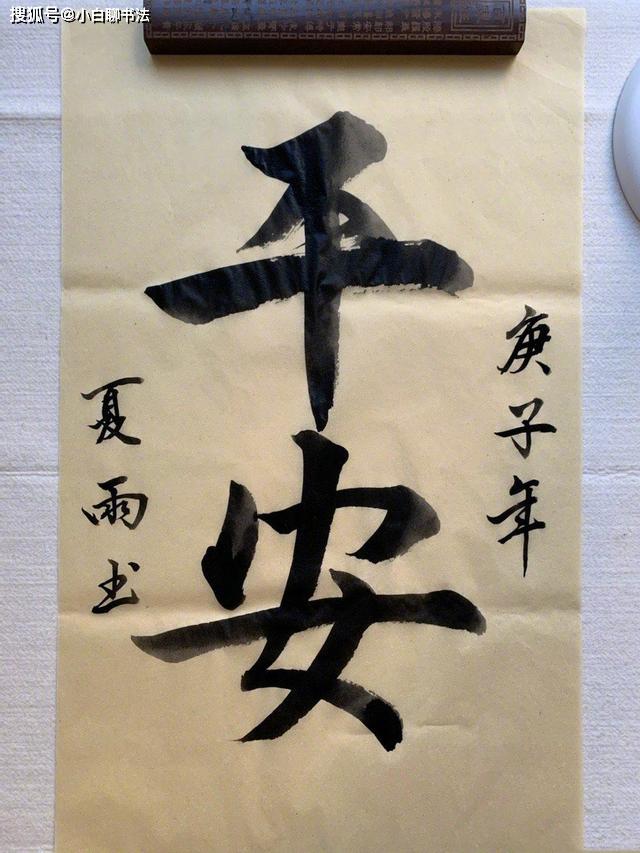 搜狐号@小白聊书法
庚子年
平安
夏雨书